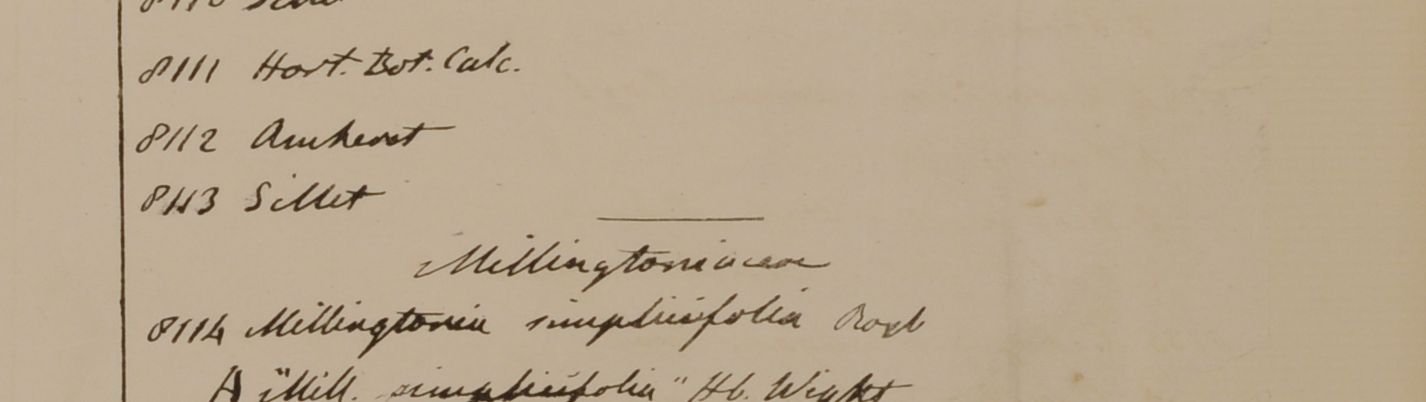 8111 Hort. Bot. Calc.
8112 Amherst
8113 Sillet
Millingtoniaceae
8114 Millingtonia simplicifolia Roxb
A "Mill. simplicifolia" Hb. Wight